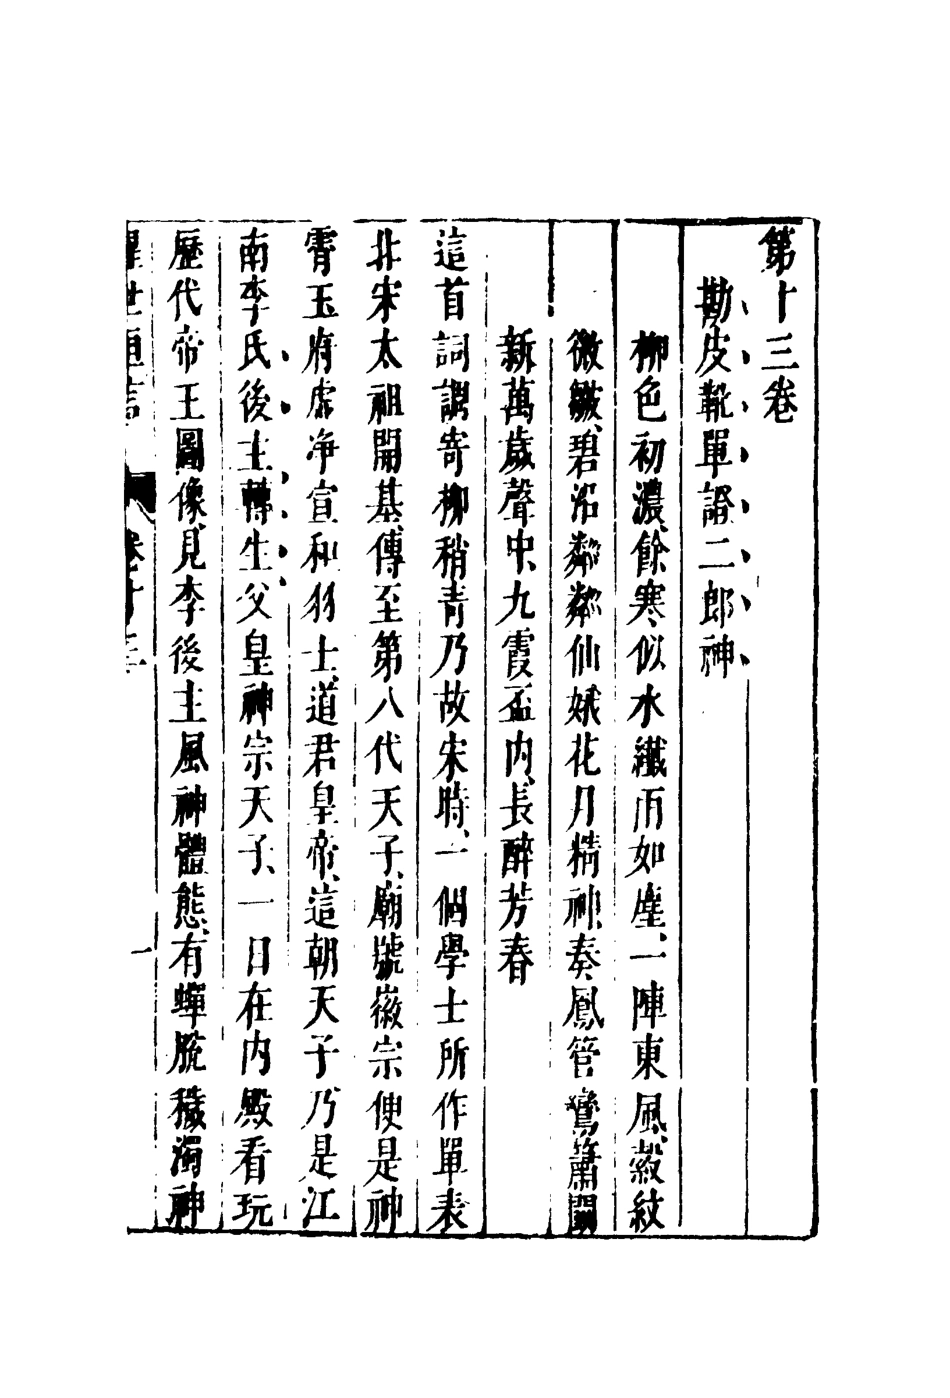 第十三卷
勘皮靴單證二郎神
柳色初濃、餘寒似水、纖雨如塵、一陣東風、縠紋
微皺、碧沼粼粼、仙娥花月精神、奏鳳管鸞簫鬬
新、萬歲聲中、九霞盃內、長醉芳春
這首詞調寄柳稍青、乃故宋時、一個學士所作、單表
北宋太祖開基、傳至第八代天子、廟號徽宗、便是神
霄玉府虛净宣和羽士道君皇帝、這朝天子、乃是江
南李氏後主轉生、父皇神宗天子、一日在內殿看玩
歷代帝王圖像、見李後主風神體態、有蟬脫穢濁、神
醒世恒言 卷十三 一